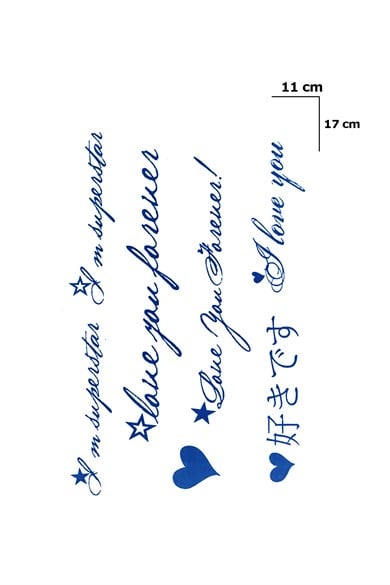 11 cm
17 cm
I m superstar
I m superstar
love you forever
Love You Forever!
I love you
好きです